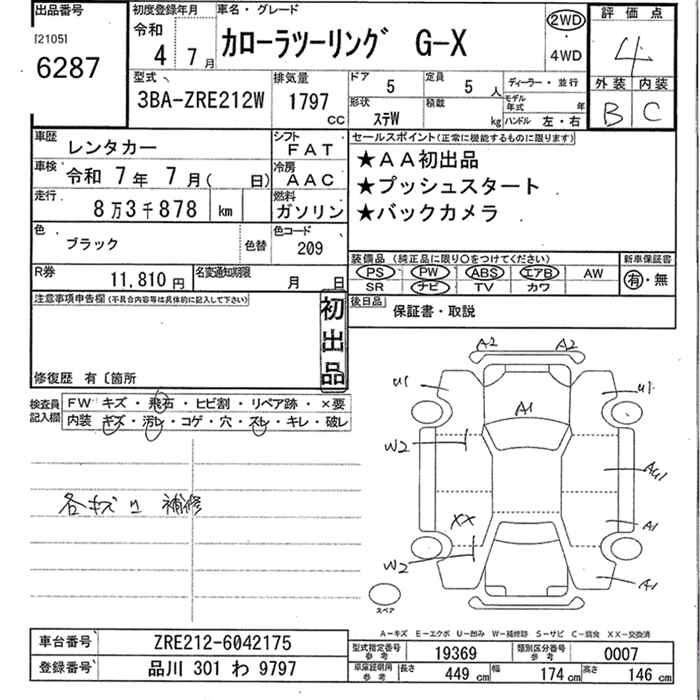 出品番号
[2105]
6287
初度登録年月
令和
4 7月
車名・グレード
カローラツーリング G-X
2WD
・
4WD
評価点
4
外装 内装
B C
型式
3BA-ZRE212W
排気量
1797
cc
ドア
5
定員
5 人
ディーラー・並行
形状
ステW
積載
kg
モデル年式 年
ハンドル 左・右
車歴
レンタカー
シフト
FAT
車検
令和 7年 7月( 日)
冷房
AAC
走行
8万3千878 km
燃料
ガソリン
色
ブラック
色替
色コード
209
R券
11,810円
名変通知期限
月 日
セールスポイント(正常に機能するものに限ります)
★AA初出品
★プッシュスタート
★バックカメラ
装備品(純正品に限り○をつけてください)
PS PW ABS エアB AW
SR ナビ TV カワ
新車保証書
有・無
後日品
保証書・取説
注意事項申告欄(不具合内容等は具体的に記入して下さい)
初出品
修復歴 有〔箇所
検査員記入欄
FW キズ・飛石・ヒビ割・リペア跡・×要
内装 キズ・汚レ・コゲ・穴・スレ・キレ・破レ
各キズ 補修
A2 A2
U1 U1
A1
W2
AU1
XX
A1
W2
A1
スペア
A-キズ E-エクボ U-凹み W-補修跡 S-サビ C-腐食 XX-交換済
車台番号
ZRE212-6042175
登録番号
品川 301 わ 9797
型式指定番号
参考
19369
類別区分番号
参考
0007
車庫証明用
参考
長さ 449 cm 幅 174 cm 高さ 146 cm